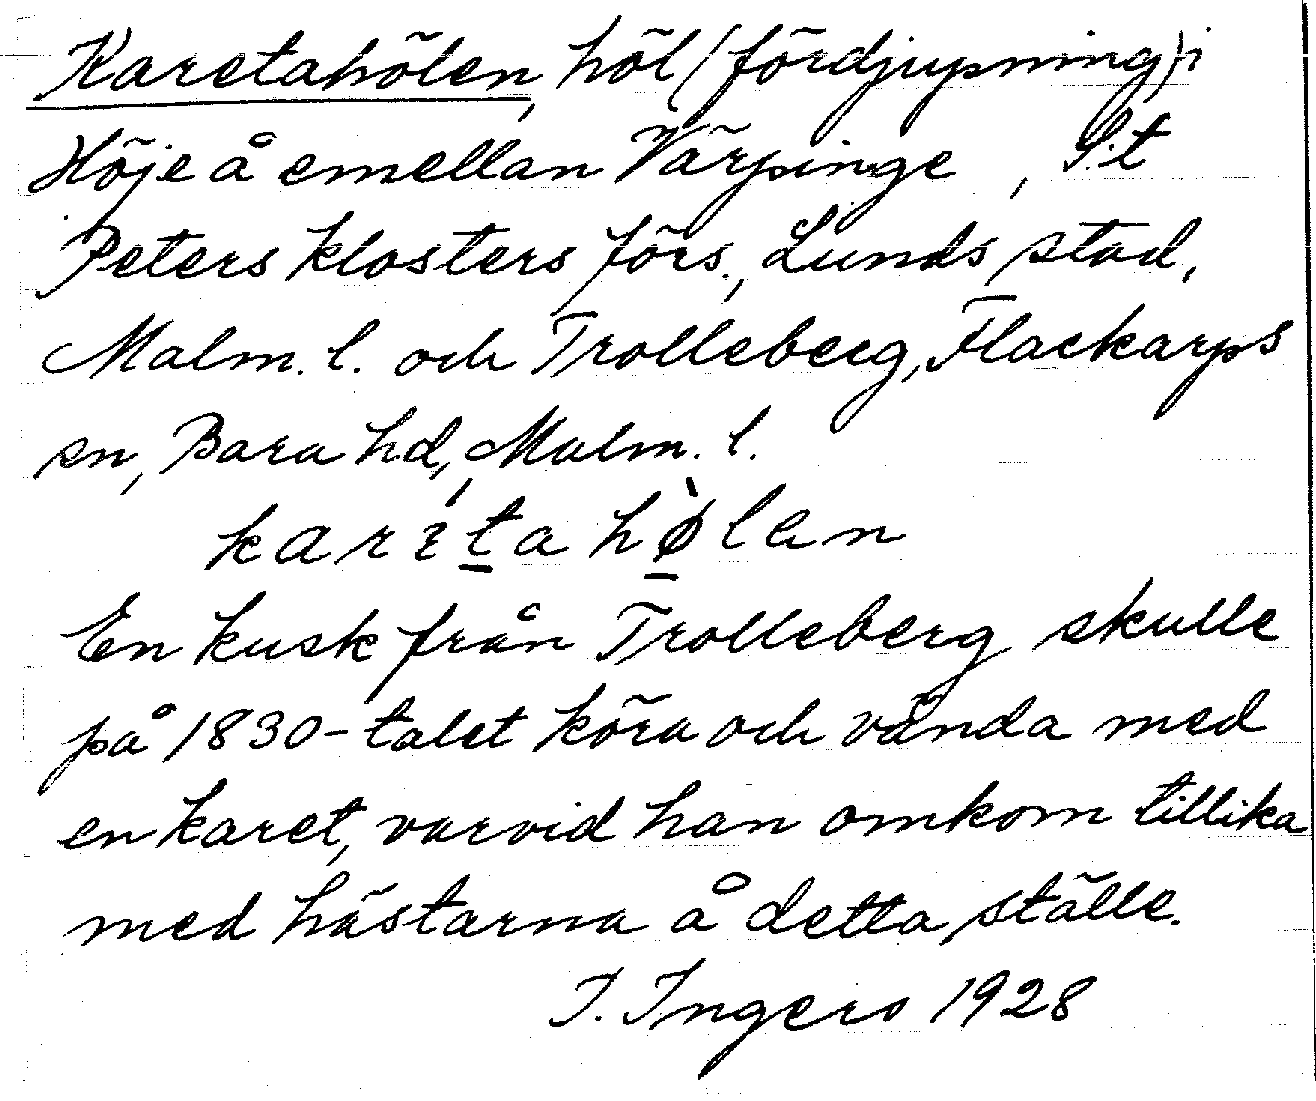 Karetahölen, höl (fördjupning) i
Höje å emellan Värpinge , S:t
Peters klosters förs., Lunds stad,
Malm. l. och Trolleberg, Flackarps
sn, Bara hd, Malm. l.
karétahø̀lan
En kusk från Trolleberg skulle
på 1830-talet köra och vända med
en karet, varvid han omkom tillika
med hästarna å detta ställe.
I. Ingers 1928